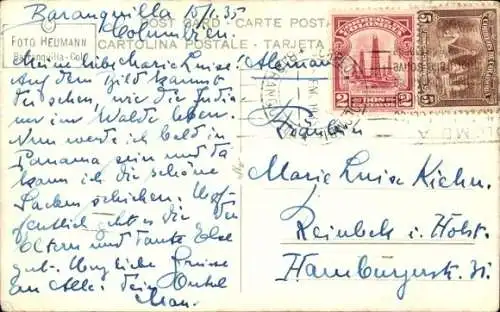 Baranquilla 15/1.35
Kolumbien.
POST CARD - CARTE POSTA
CARTOLINA POSTALE - TARJETA
FOTO HEUMANN
Barranquilla-Col
Mein liebes Marie Luise!
Auf dem Bild kannst
du sehen, wie die India
ner im Walde leben.
Nun werde ich bald in
Panama sein und da
kann ich die schöne
Sachen schicken. Hof-
fentlich geht es dir den
Eltern und Tante Else
gut. Herzliche Grüsse
an Alle. Dein Onkel
Max.
2
2
5
5
Marie Luise Kiehn.
Reinbek i. Holst.
Hamburgerstr. 31.